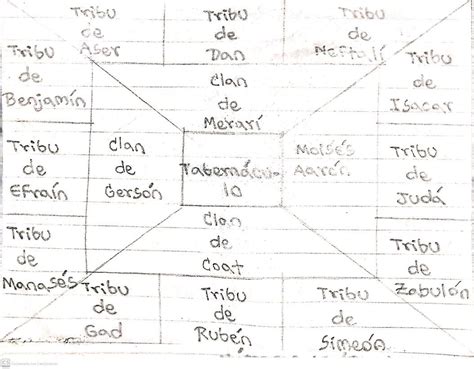 Tribu de Aser
Tribu de Dan
Tribu de Neftalí
Tribu de Benjamín
Clan de Merarí
Tribu de Isacar
Tribu de Efraín
Clan de Gersón
Tabernáculo
Moisés Aarón
Tribu de Judá
Tribu de Manasés
Clan de Coat
Tribu de Zabulón
Tribu de Gad
Tribu de Rubén
Tribu de Simeón